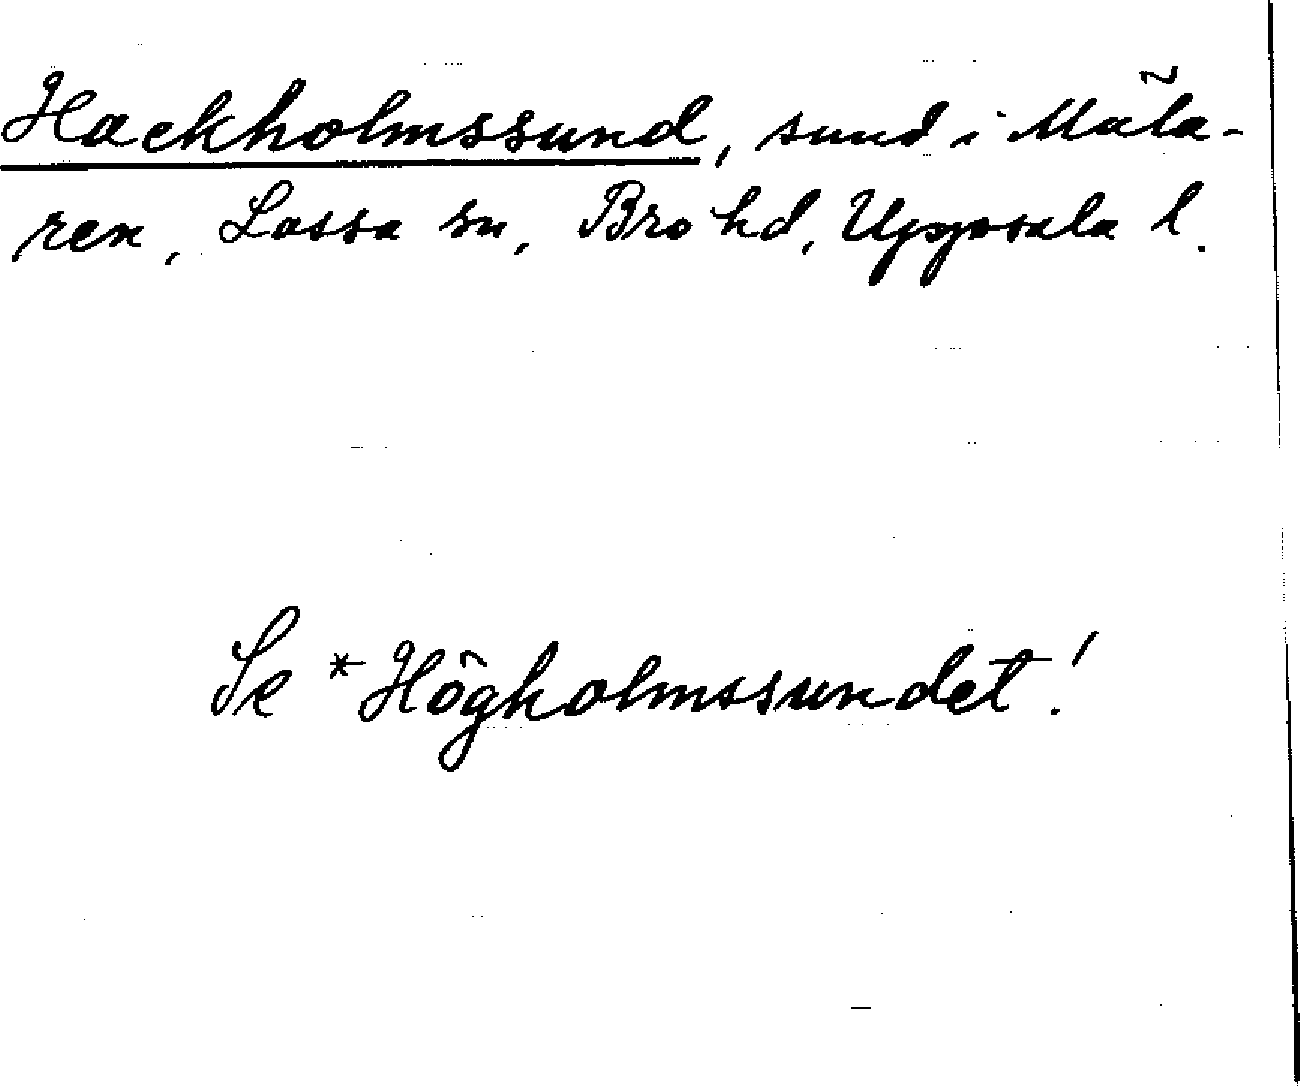 Hackholmssund, sund i Mäla-
ren, Lossa sn, Bro hd, Uppsala l.
Se *Högholmssundet!